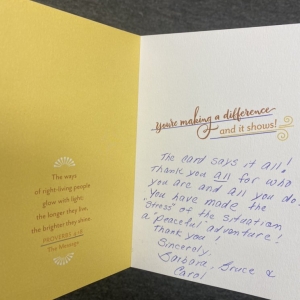 The ways
of right-living people
glow with light;
the longer they live,
the brighter they shine.
PROVERBS 4:18
The Message
You're making a difference
and it shows!
The card says it all!
Thank you all for who
you are and all you do.
You have made the
"stress" of the situation
a "peaceful" adventure!
Thank you!
Sincerely,
Barbara, Bruce &
Carol